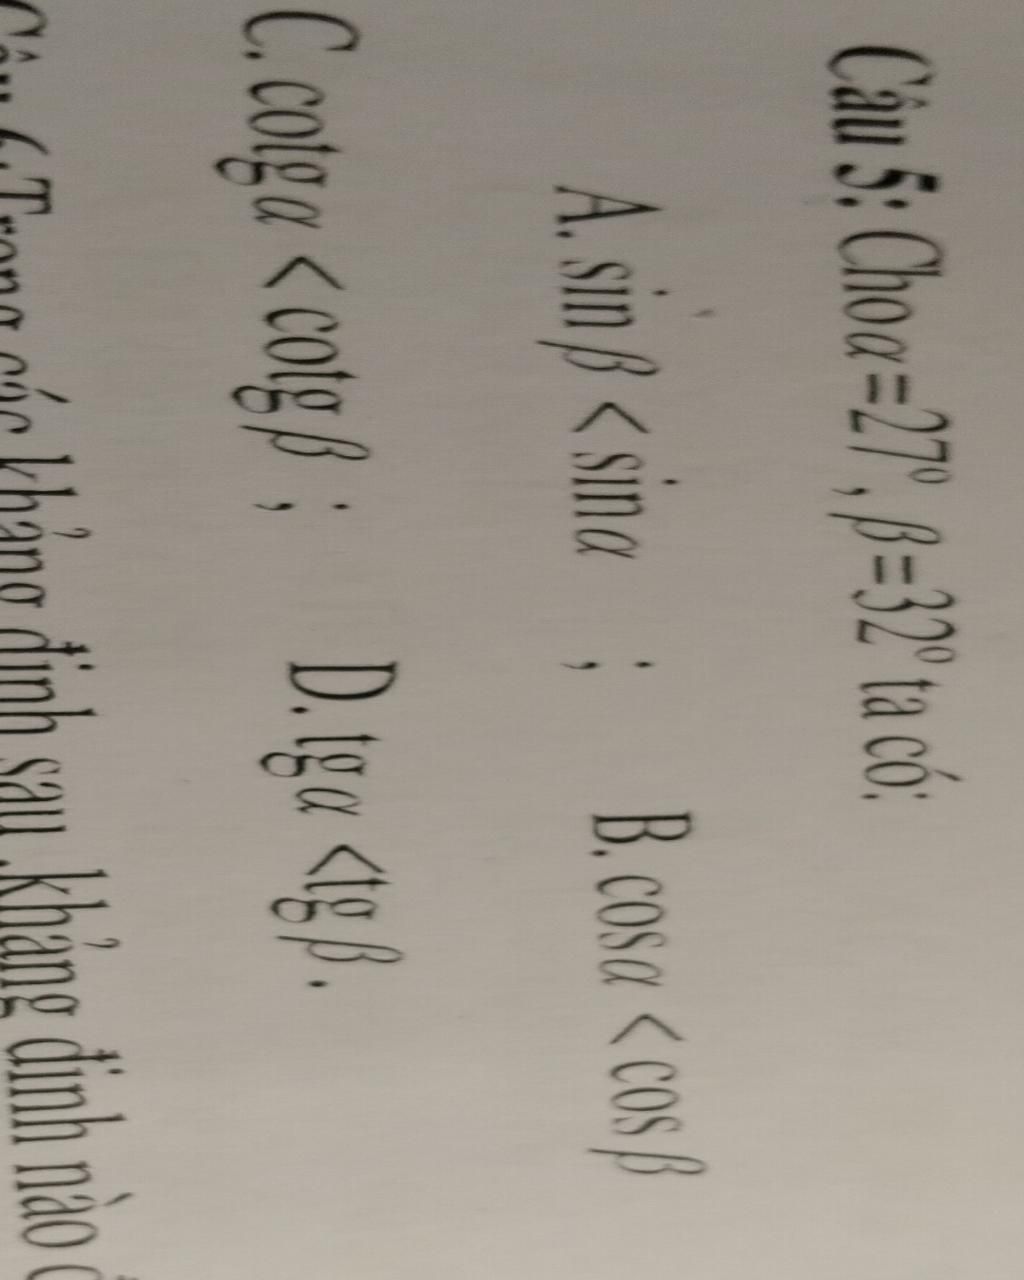 Câu 5: Cho α = 27⁰, β = 32⁰ ta có:
A. sin β < sin α ; B. cos α < cos β
C. cotg α < cotg β ; D. tg α < tg β .
Câu 6. Trong các khẳng định sau ,khẳng định nào